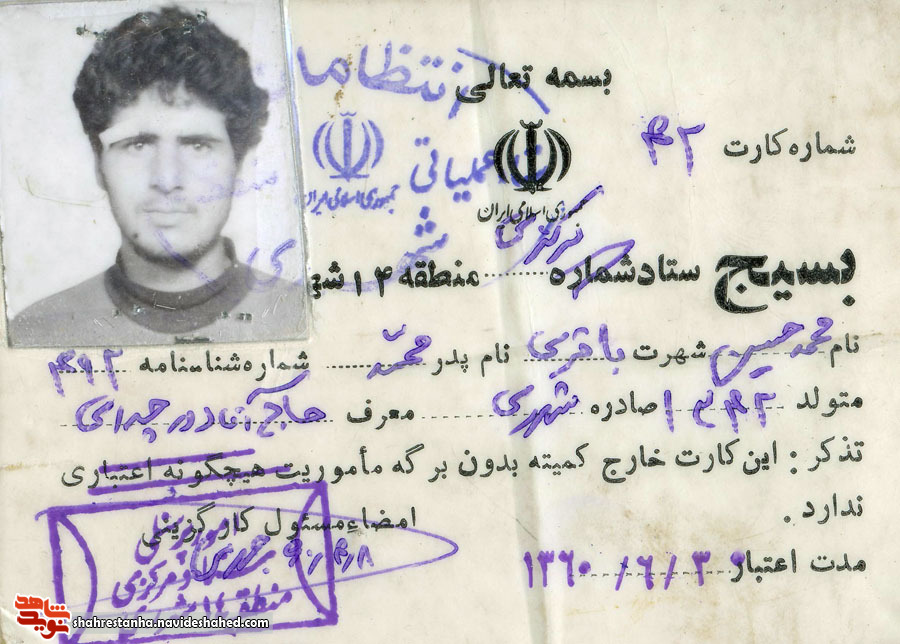 بسمه تعالی
انتظامات
شماره کارت ۴۲
عملیاتی
جمهوری اسلامی ایران
جمهوری اسلامی ایران
بسیج ستاد شماره مرکزی منطقه ۱۴ شه
نام محمد حسین شهرت باقری نام پدر محمد شماره شناسنامه ۴۹۲
متولد ۱۳۴۲ صادره شهرری معرف حاج آقا
تذکر : این کارت خارج کمیته بدون برگه مأموریت هیچگونه اعتباری
ندارد .
امضاء مسئول کارگزینی
مدت اعتبار ۱۳۶۰/۶/۳۰
امور پرسنلی
مرکزی
منطقه ۱۴
نوید شاهد
shahrestanha.navideshahed.com